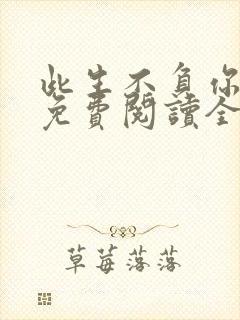 此生不負你
免費閱讀全
草莓落落